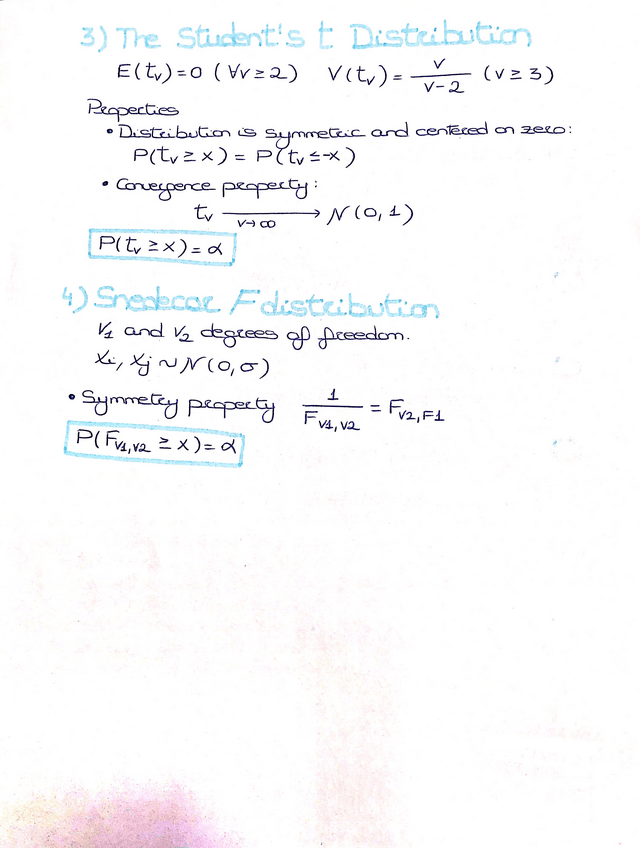 3) The Student's t Distribution
E(tᵥ)=0 (∀v≥2) V(tᵥ)= v/(v-2) (v≥3)
Properties
• Distribution is symmetric and centered on zero:
P(tᵥ ≥ x) = P(tᵥ ≤ -x)
• Convergence property:
tᵥ ⟶ N(0, 1)
v→∞
P(tᵥ ≥ x) = α
4) Snedecor F distribution
V1 and V2 degrees of freedom.
Xi, Xj ~ N(0, σ)
• Symmetry property 1/F_{V1,V2} = F_{V2,F1}
P(F_{V1,V2} ≥ x) = α